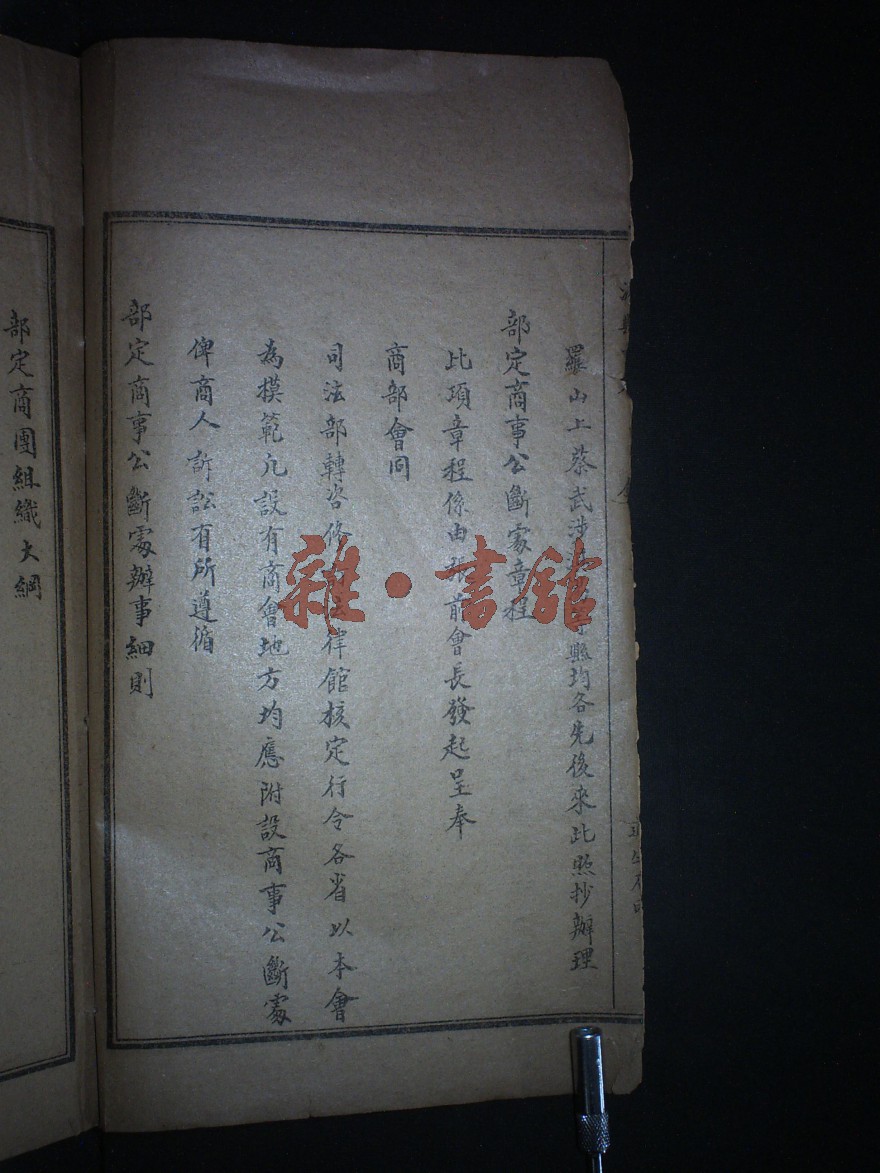 羅山上蔡武涉縣均各先後來此照抄辦理
部定商事公斷處章程
此項章程係由張前會長發起呈奉
商部會同
司法部轉咨修法律館核定行令各省以本會
為模範凡設有商會地方均應附設商事公斷處
俾商人訴訟有所遵循
部定商事公斷處辦事細則
部定商團組織大綱
雜·書館